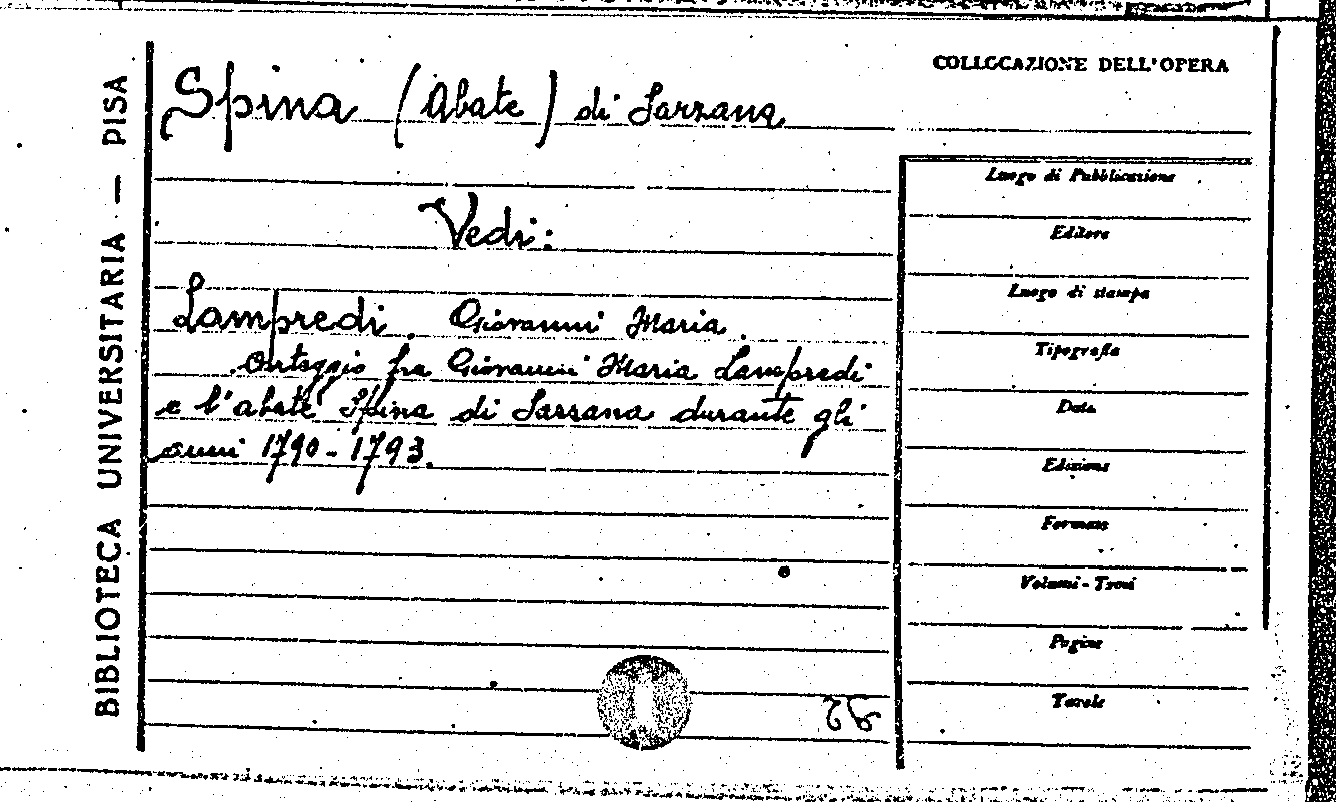 BIBLIOTECA UNIVERSITARIA — PISA
Spina (Abate) di Sarzana
Vedi:
Lampredi, Giovanni Maria.
Carteggio fra Giovanni Maria Lampredi
e l'abate Spina di Sarzana durante gli
anni 1790-1793.
COLLOCAZIONE DELL'OPERA
Luogo di Pubblicazione
Editore
Luogo di stampa
Tipografia
Data
Edizione
Formato
Volumi - Tomi
Pagine
Tavole